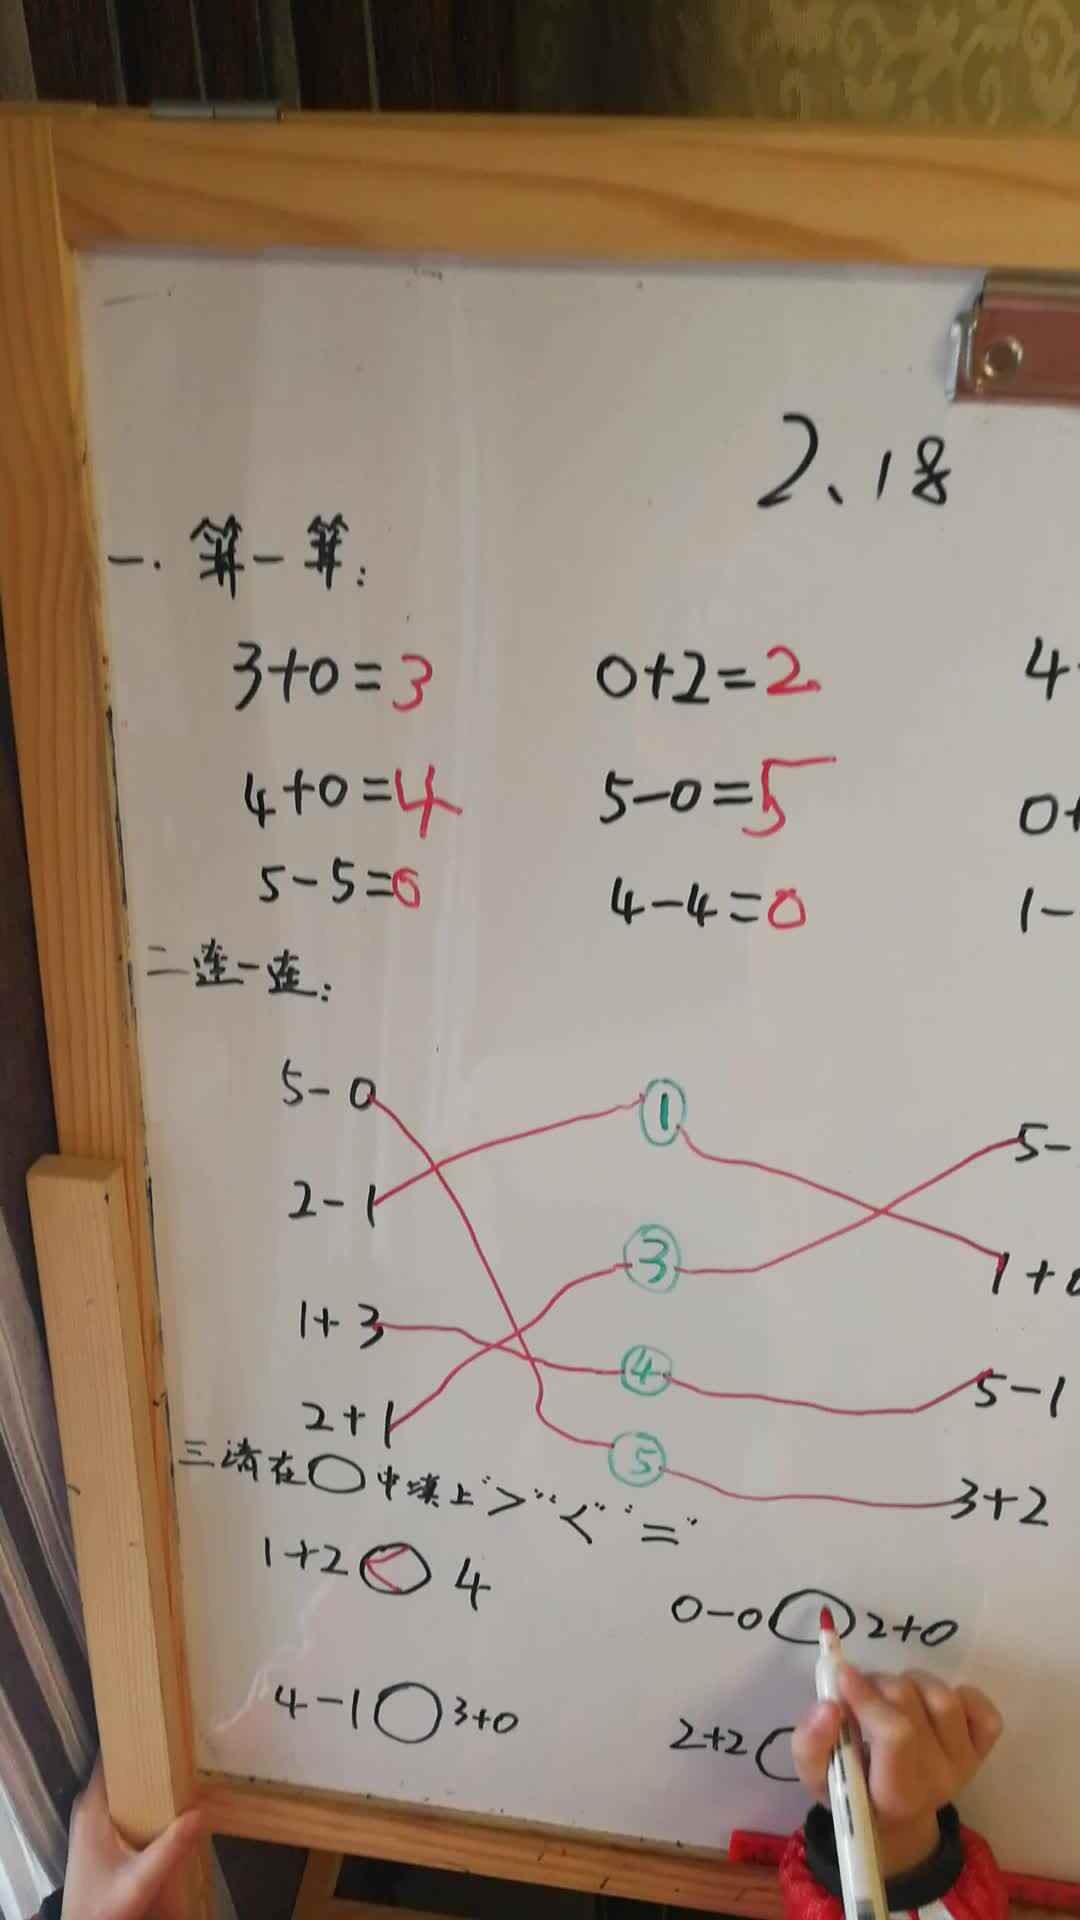 2、18
一. 算一算:
3+0=3 0+2=2 4
4+0=4 5-0=5 0+
5-5=0 4-4=0 1-
二 连一连:
5-0 ① 5-
2-1 ③ 1+0
1+3 ④ 5-1
2+1 ⑤ 3+2
三 请在○中填上“>”“<”“=”
1+2 < 4 0-0 ○ 2+0
4-1 ○ 3+0 2+2